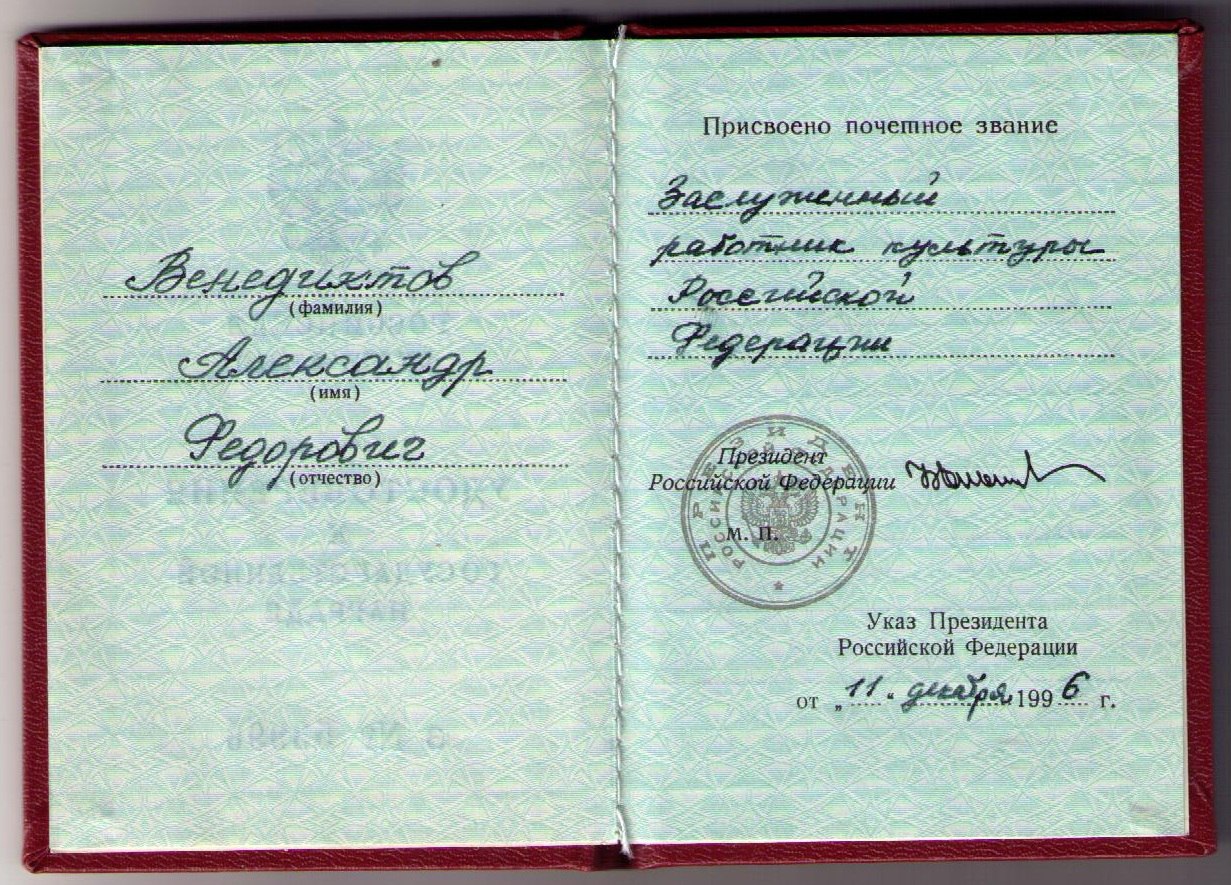 Венедиктов
(фамилия)
Александр
(имя)
Федорович
(отчество)
УДОСТОВЕРЕНИЕ
К
ГОСУДАРСТВЕННОЙ
НАГРАДЕ
Присвоено почетное звание
Заслуженный
работник культуры
Российской
Федерации
Президент
Российской Федерации
М. П.
ПРЕЗИДЕНТ
РОССИЙСКОЙ ФЕДЕРАЦИИ
Указ Президента
Российской Федерации
от „11“ декабря 1996 г.